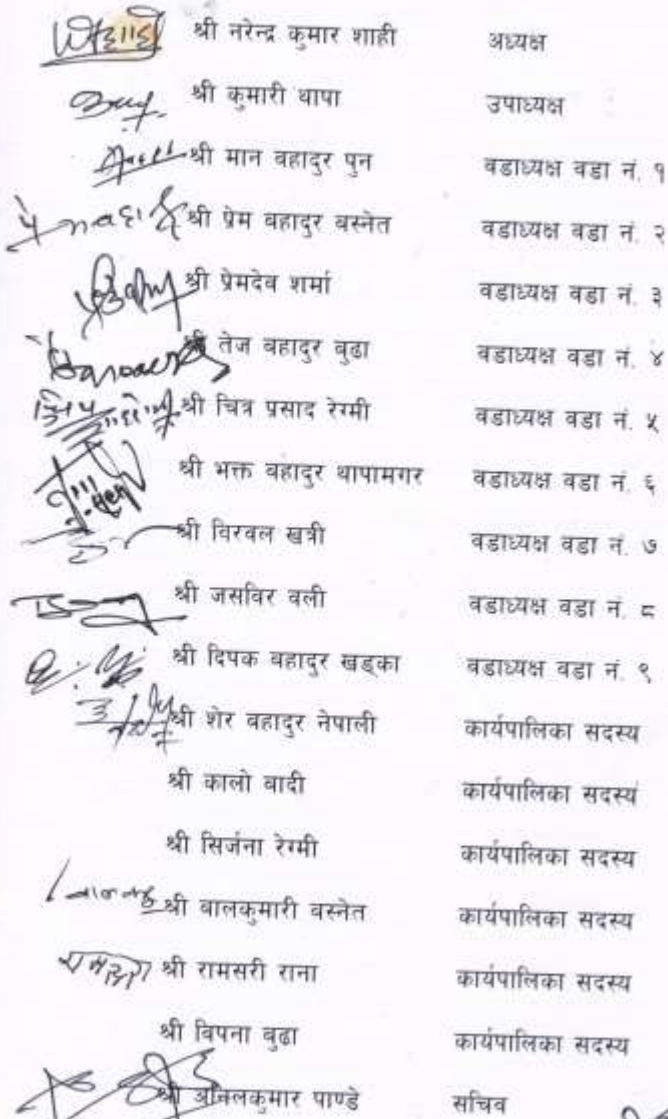 श्री नरेन्द्र कुमार शाही अध्यक्ष
श्री कुमारी थापा उपाध्यक्ष
श्री मान वहादुर पुन वडाध्यक्ष वडा नं. १
श्री प्रेम वहादुर वस्नेत वडाध्यक्ष वडा नं. २
श्री प्रेमदेव शर्मा वडाध्यक्ष वडा नं. ३
श्री तेज वहादुर वुढा वडाध्यक्ष वडा नं. ४
श्री चित्र प्रसाद रेग्मी वडाध्यक्ष वडा नं. ५
श्री भक्त वहादुर थापामगर वडाध्यक्ष वडा नं. ६
श्री विरवल खत्री वडाध्यक्ष वडा नं. ७
श्री जसविर वली वडाध्यक्ष वडा नं. ८
श्री दिपक वहादुर खड्का वडाध्यक्ष वडा नं. ९
श्री शेर वहादुर नेपाली कार्यपालिका सदस्य
श्री कालो वादी कार्यपालिका सदस्य
श्री सिर्जना रेग्मी कार्यपालिका सदस्य
श्री वालकुमारी वस्नेत कार्यपालिका सदस्य
श्री रामसरी राना कार्यपालिका सदस्य
श्री विपना वुढा कार्यपालिका सदस्य
श्री अनिलकुमार पाण्डे सचिव